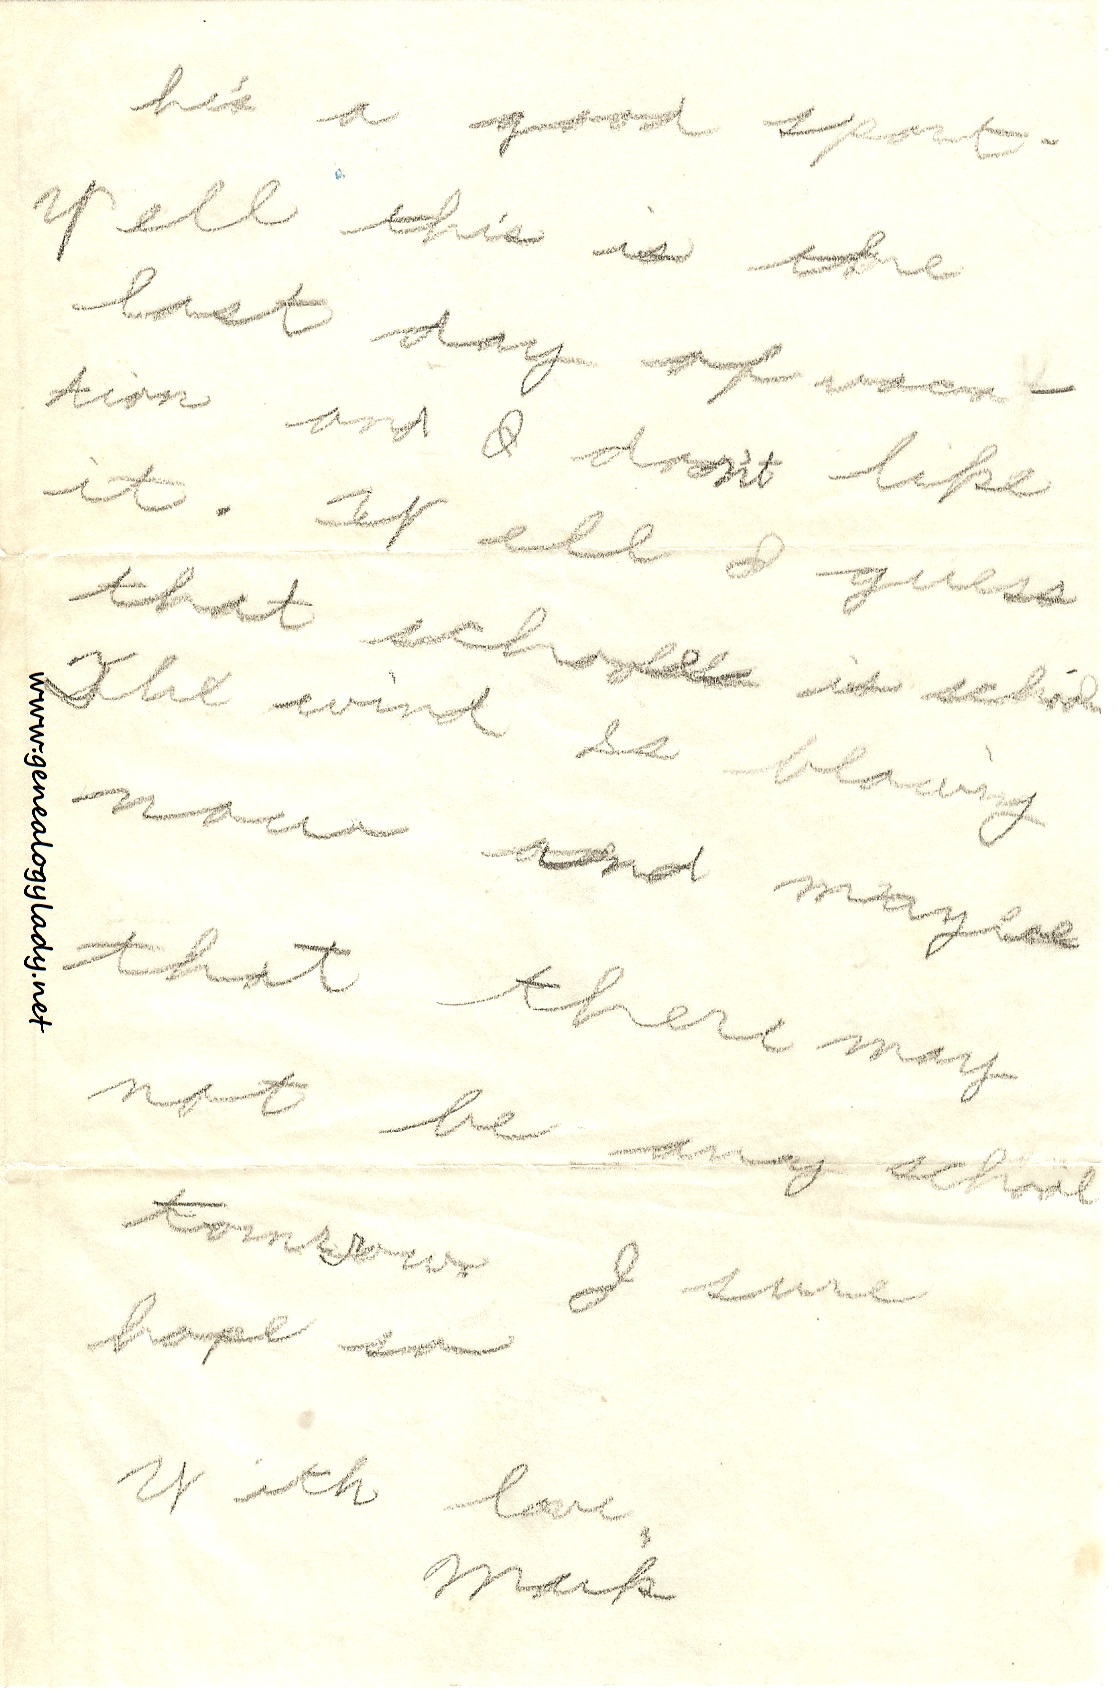 he's a good sport.
Well this is the
last day of vaca-
tion and I don't like
it. Well I guess
that school is school
The wind is blowing
now and maybe
that there may
not be any school
tomrrow. I sure
hope so
With love,
Mark
www.genealogylady.net